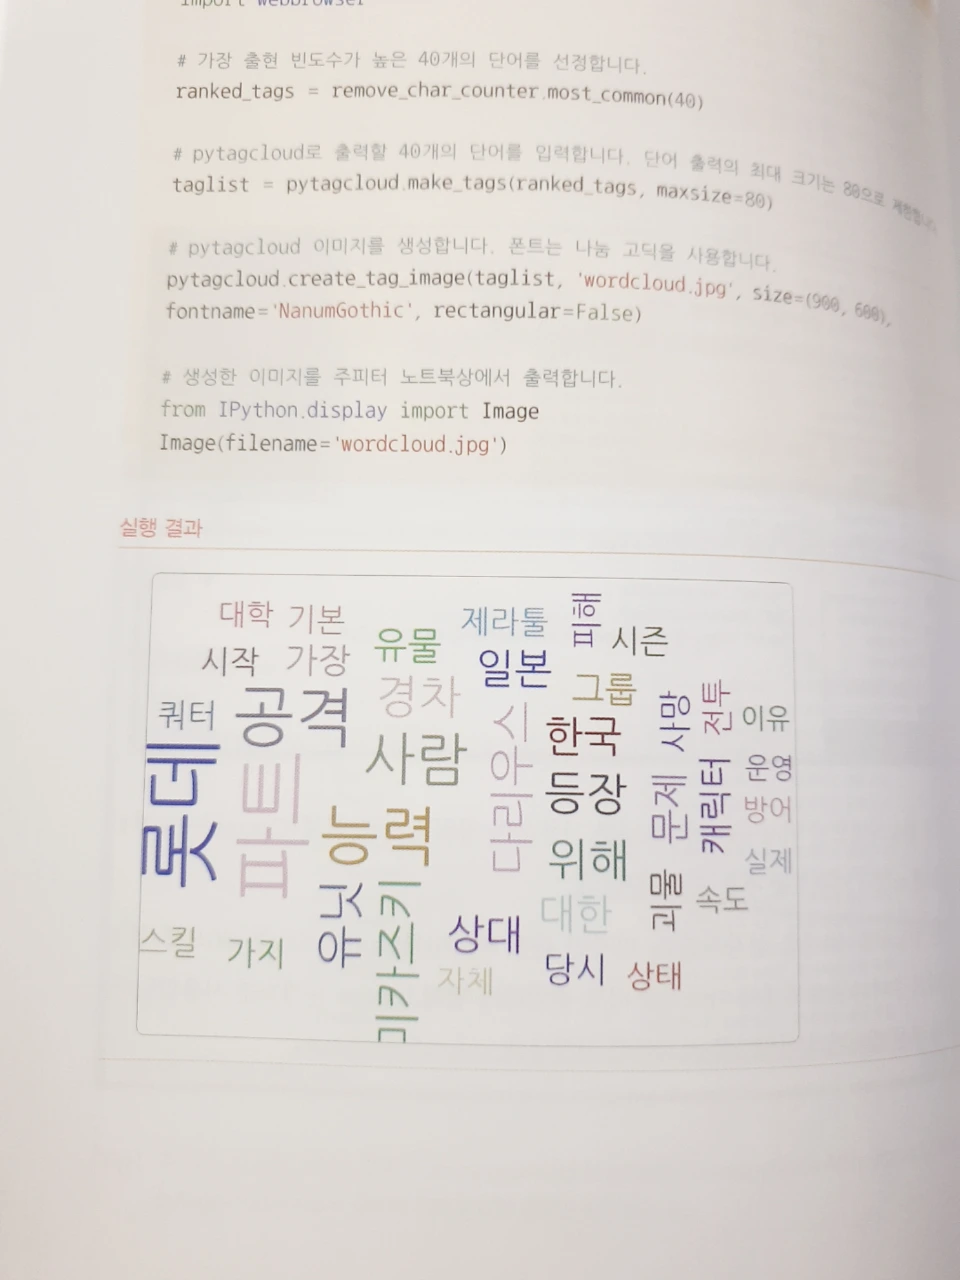 import webbrowser
# 가장 출현 빈도수가 높은 40개의 단어를 선정합니다.
ranked_tags = remove_char_counter.most_common(40)
# pytagcloud로 출력할 40개의 단어를 입력합니다. 단어 출력의 최대 크기는 80으로 제한합니다.
taglist = pytagcloud.make_tags(ranked_tags, maxsize=80)
# pytagcloud 이미지를 생성합니다. 폰트는 나눔 고딕을 사용합니다.
pytagcloud.create_tag_image(taglist, 'wordcloud.jpg', size=(900, 600),
fontname='NanumGothic', rectangular=False)
# 생성한 이미지를 주피터 노트북상에서 출력합니다.
from IPython.display import Image
Image(filename='wordcloud.jpg')
실행 결과
대학
기본
유물
제라툴
피해
시즌
시작
가장
경차
일본
그룹
쿼터
공격
사람
다리아시
한국
사망
전투
이유
롯데
파트
능력
등장
문제
캐릭터
운영
방어
위해
실제
유닛
미카즈키
대한
괴물
속도
스킬
가지
상대
자체
당시
상태